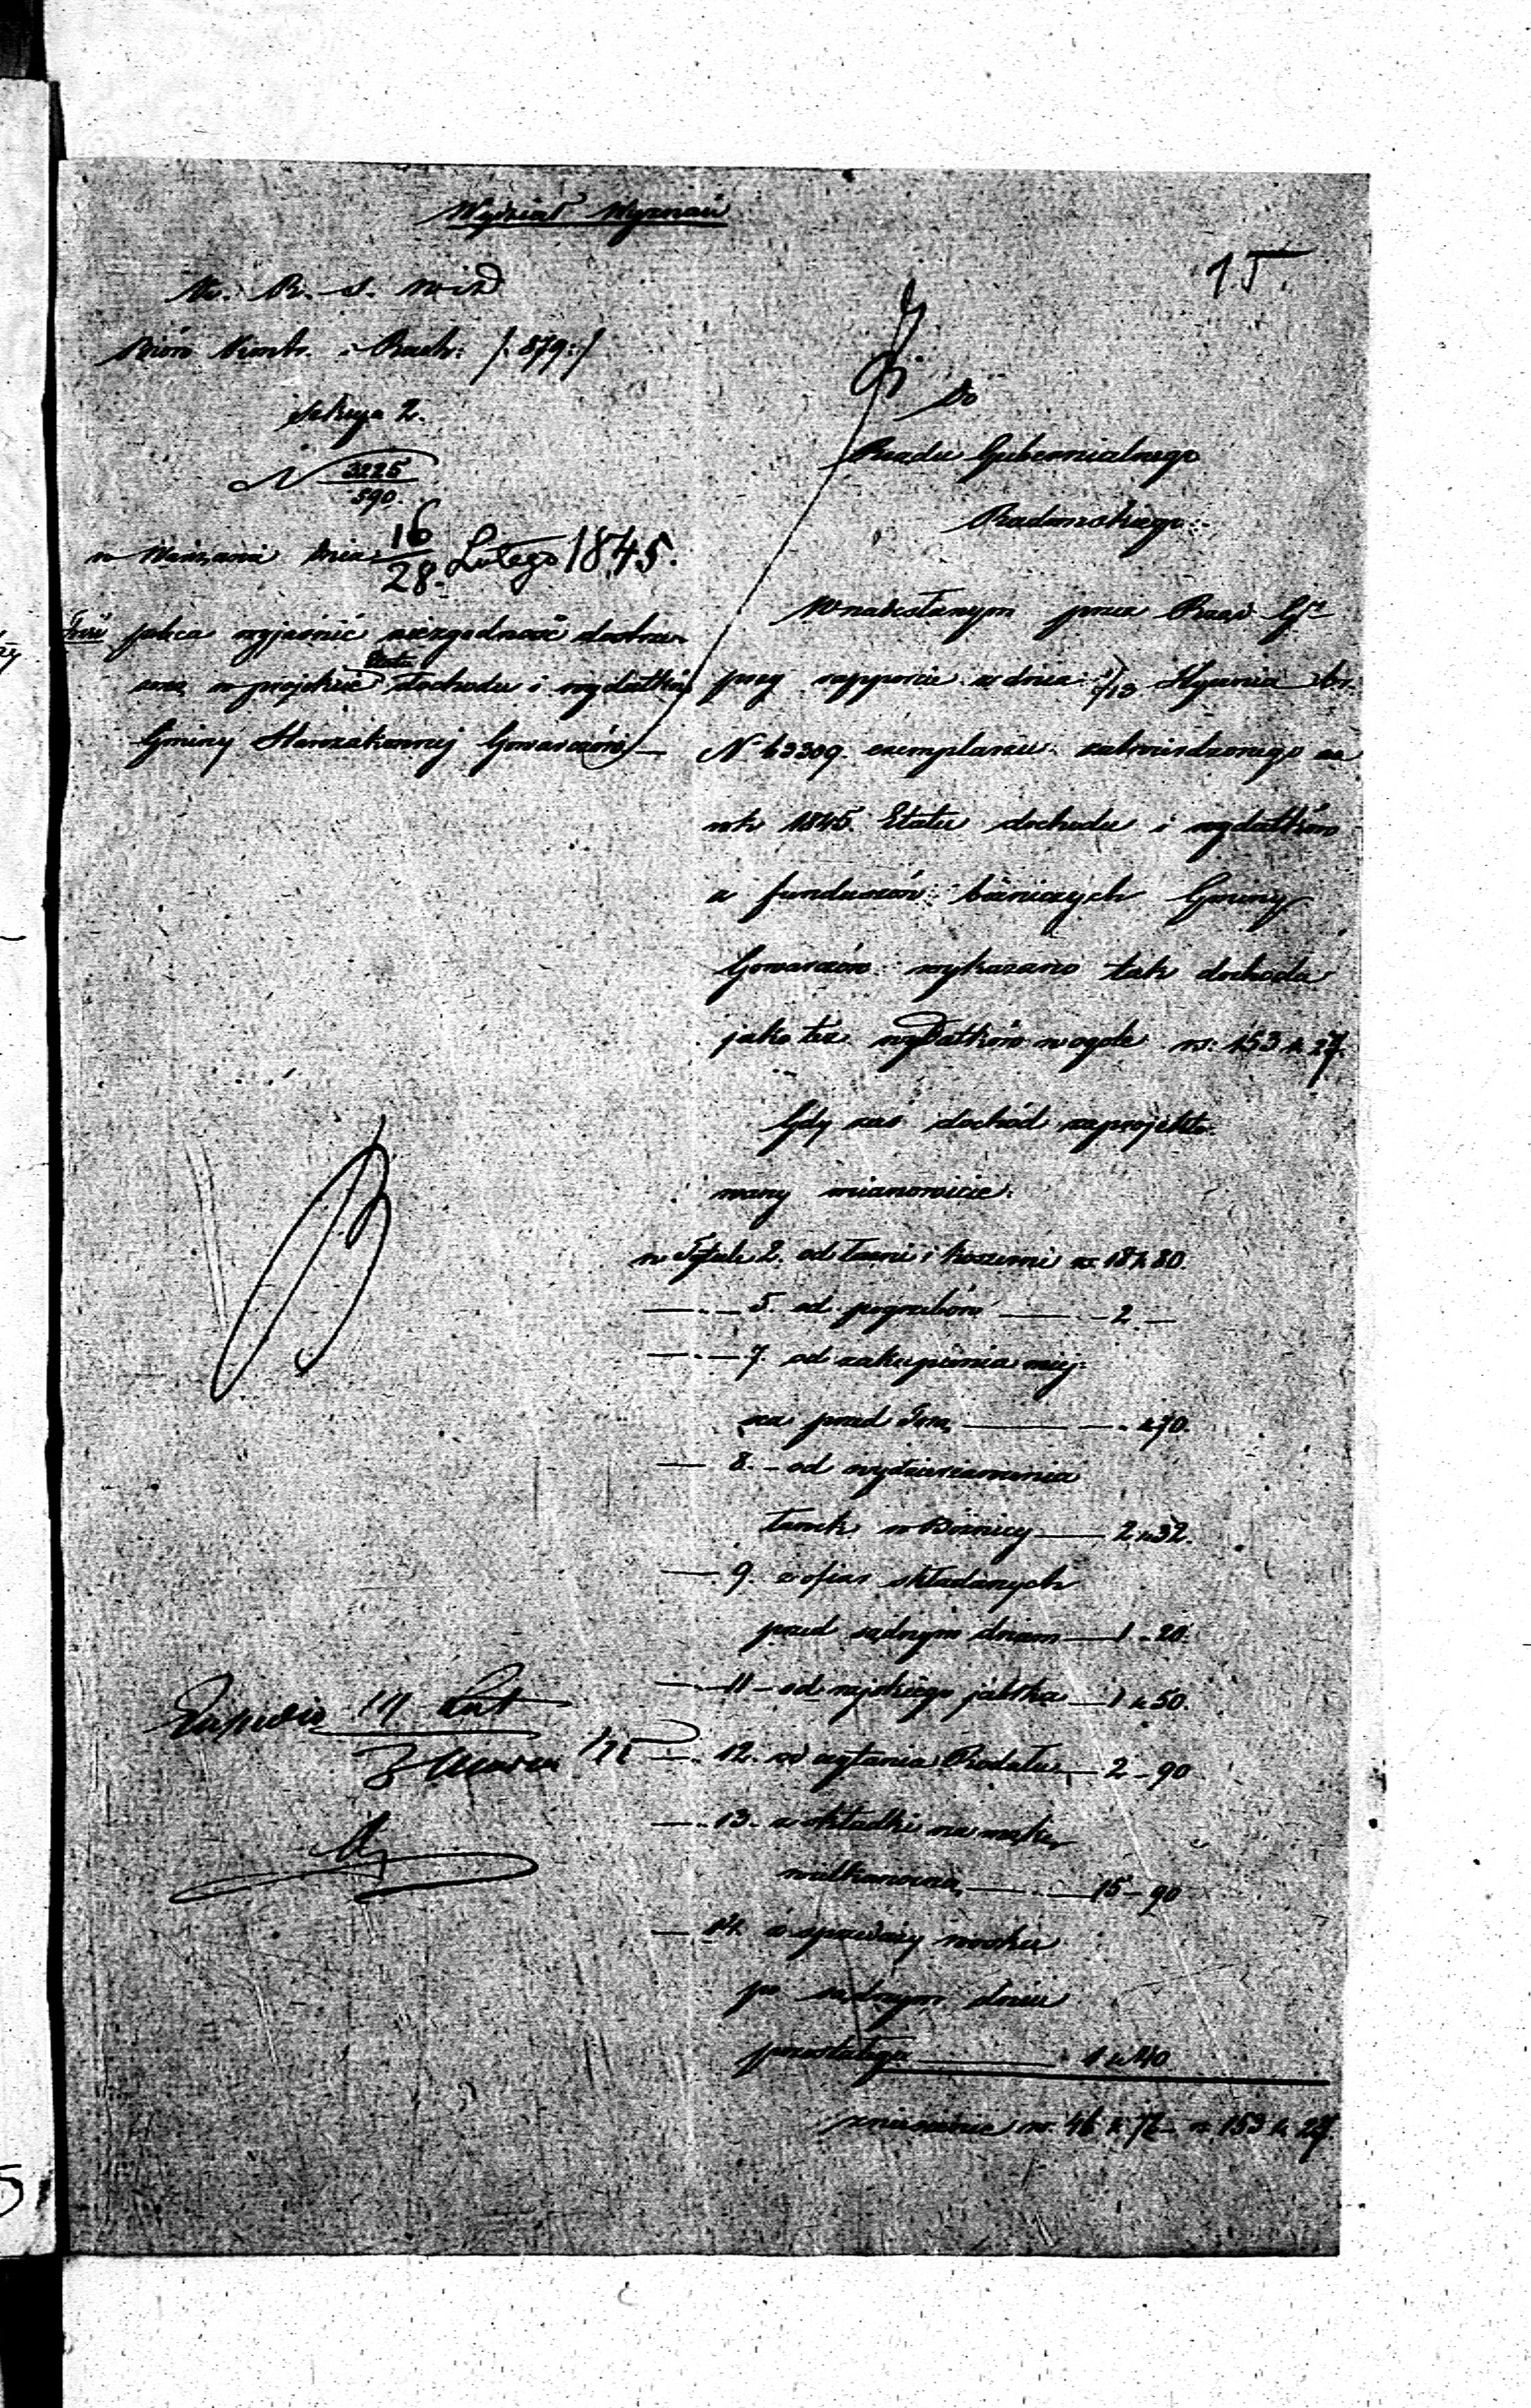 Wydział Wyznań
15.
K. R. S. W. i D
Bióro Kontr. i Rach: /:879:/
Sekcya 2.
N 3225/590
w Warszawie dnia 16/28 Lutego 1845.
poleca wyjaśnić niezgodność dostrze-
żoną w projekcie Etatu dochodu i wydatków
Gminy Starozakonnej Gowarczów
Do
Rządu Gubernialnego
Radomskiego
W nadesłanym przez Rząd Gn
przy rapporcie z dnia 1/13 Stycznia br.
N 63309. exemplarzu zatwierdzonego na
rok 1845. Etatu dochodu i wydatków
z funduszów bóżniczych Gminy
Gowarczów wykazano tak dochodu
jako też wydatków w ogóle rs: 153 k 27.
Gdy zaś dochód zaprojekto-
wany mianowicie:
w Tytule 2. od łaźni i koszerni rs 18 k 80.
5. od pogrzebów 2.
7. od zakupienia miej-
sca przed Torą k 70.
8. od wydzierżawienia
ławek w Bóżnicy 2 k 32.
9. z ofiar składanych
przed sądnym dniem 1 - 20.
11 - od rajskiego jabłka 1 k 50.
12. od czytania Rodału 2 - 90
13. z składki na mąkę
wielkanocną 15 - 90
14. z sprzedaży wosku
po sądnym dniu
pozostałego 1 k 40
rs. 46 k 72 rs 153 k 27.
3 Marca